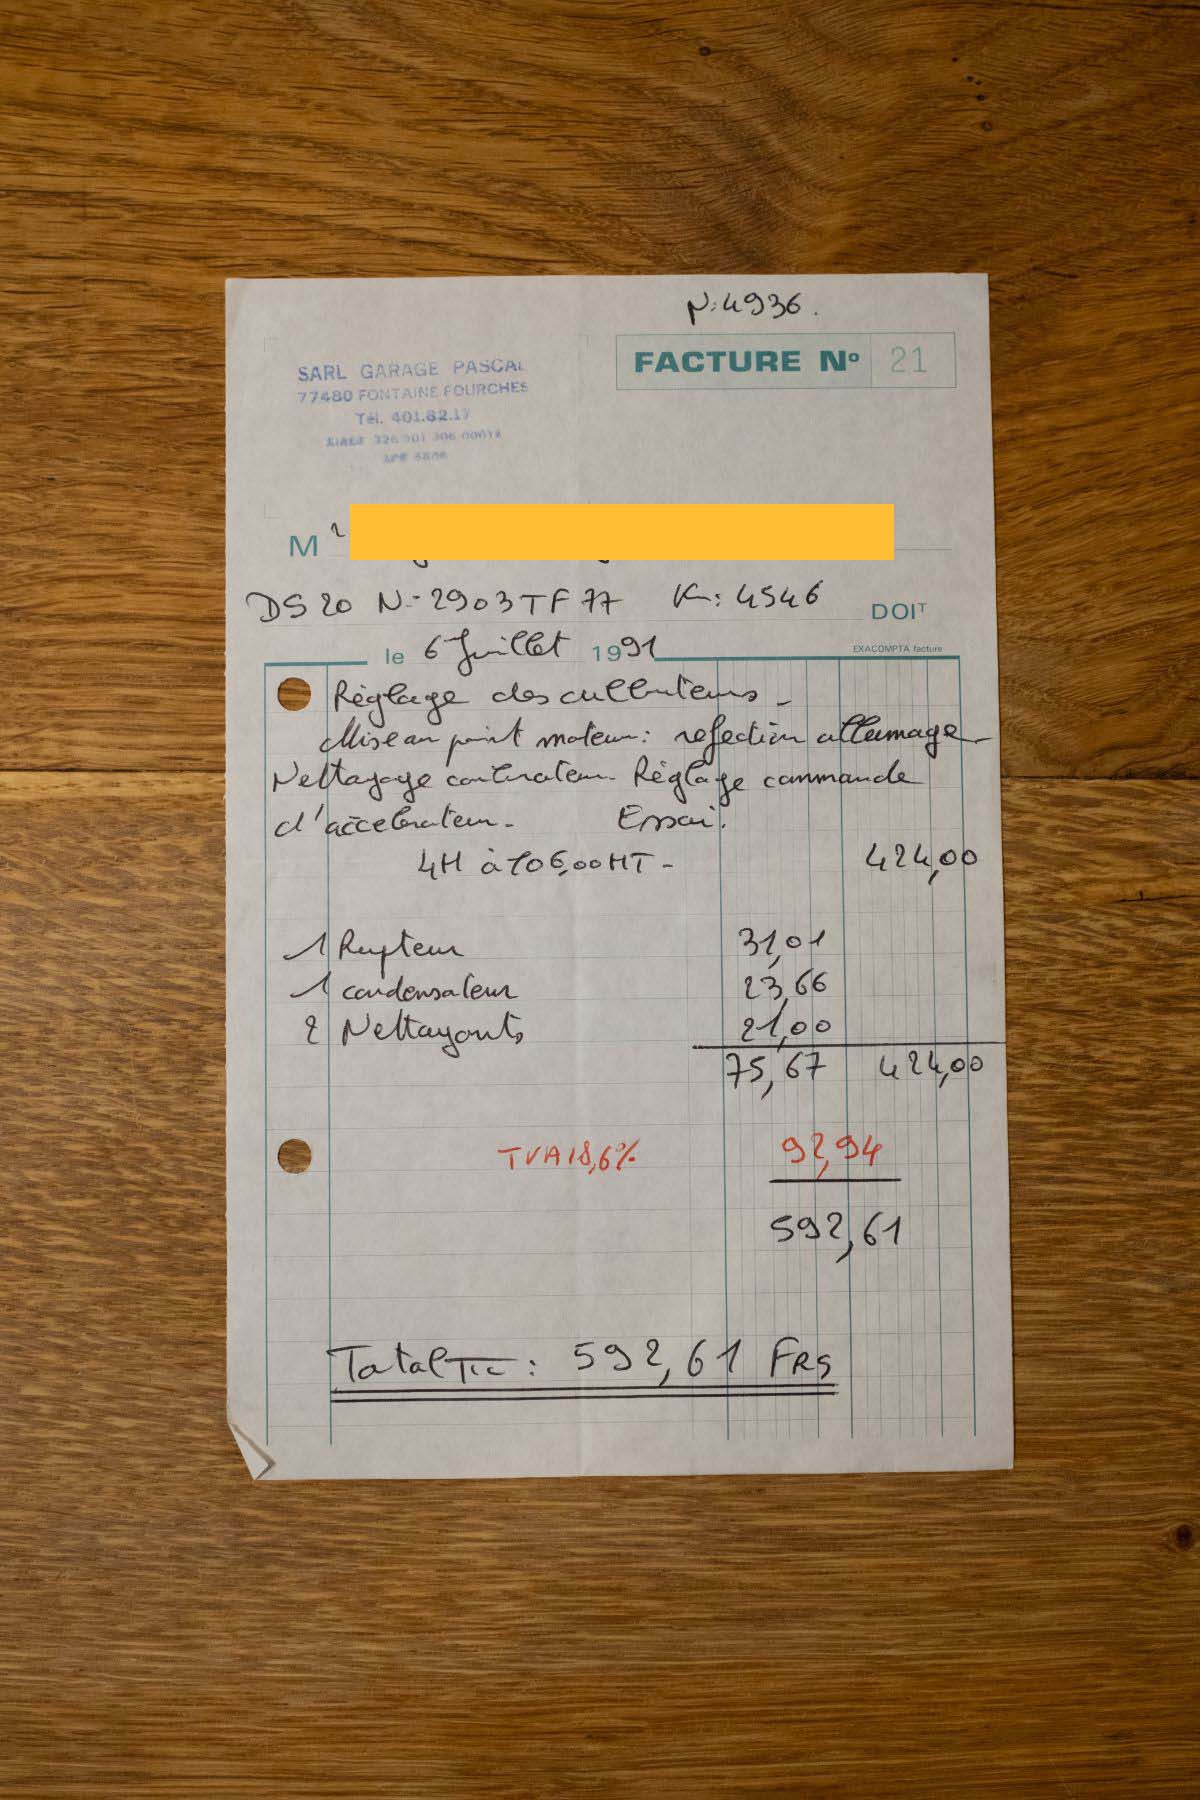 N: 4936.
FACTURE Nº 21
SARL GARAGE PASCAL
77480 FONTAINE FOURCHES
Tél. 401.82.17
M r
DS 20 N - 2903 TF 77 Km: 4546
DOIT
le 6 Juillet 1991
EXACOMPTA facture
Réglage des culbuteurs -
Mise au point moteur: refection allumage -
Nettoyage carburateur. Réglage commande
d'accelerateur - Essai.
4H à 106,00 HT - 424,00
1 Rupteur 31,01
1 condensateur 23,66
2 Nettoyants 21,00
75,67 424,00
TVA 18,6% 92,94
592,61
Total TTC : 592,61 FRS